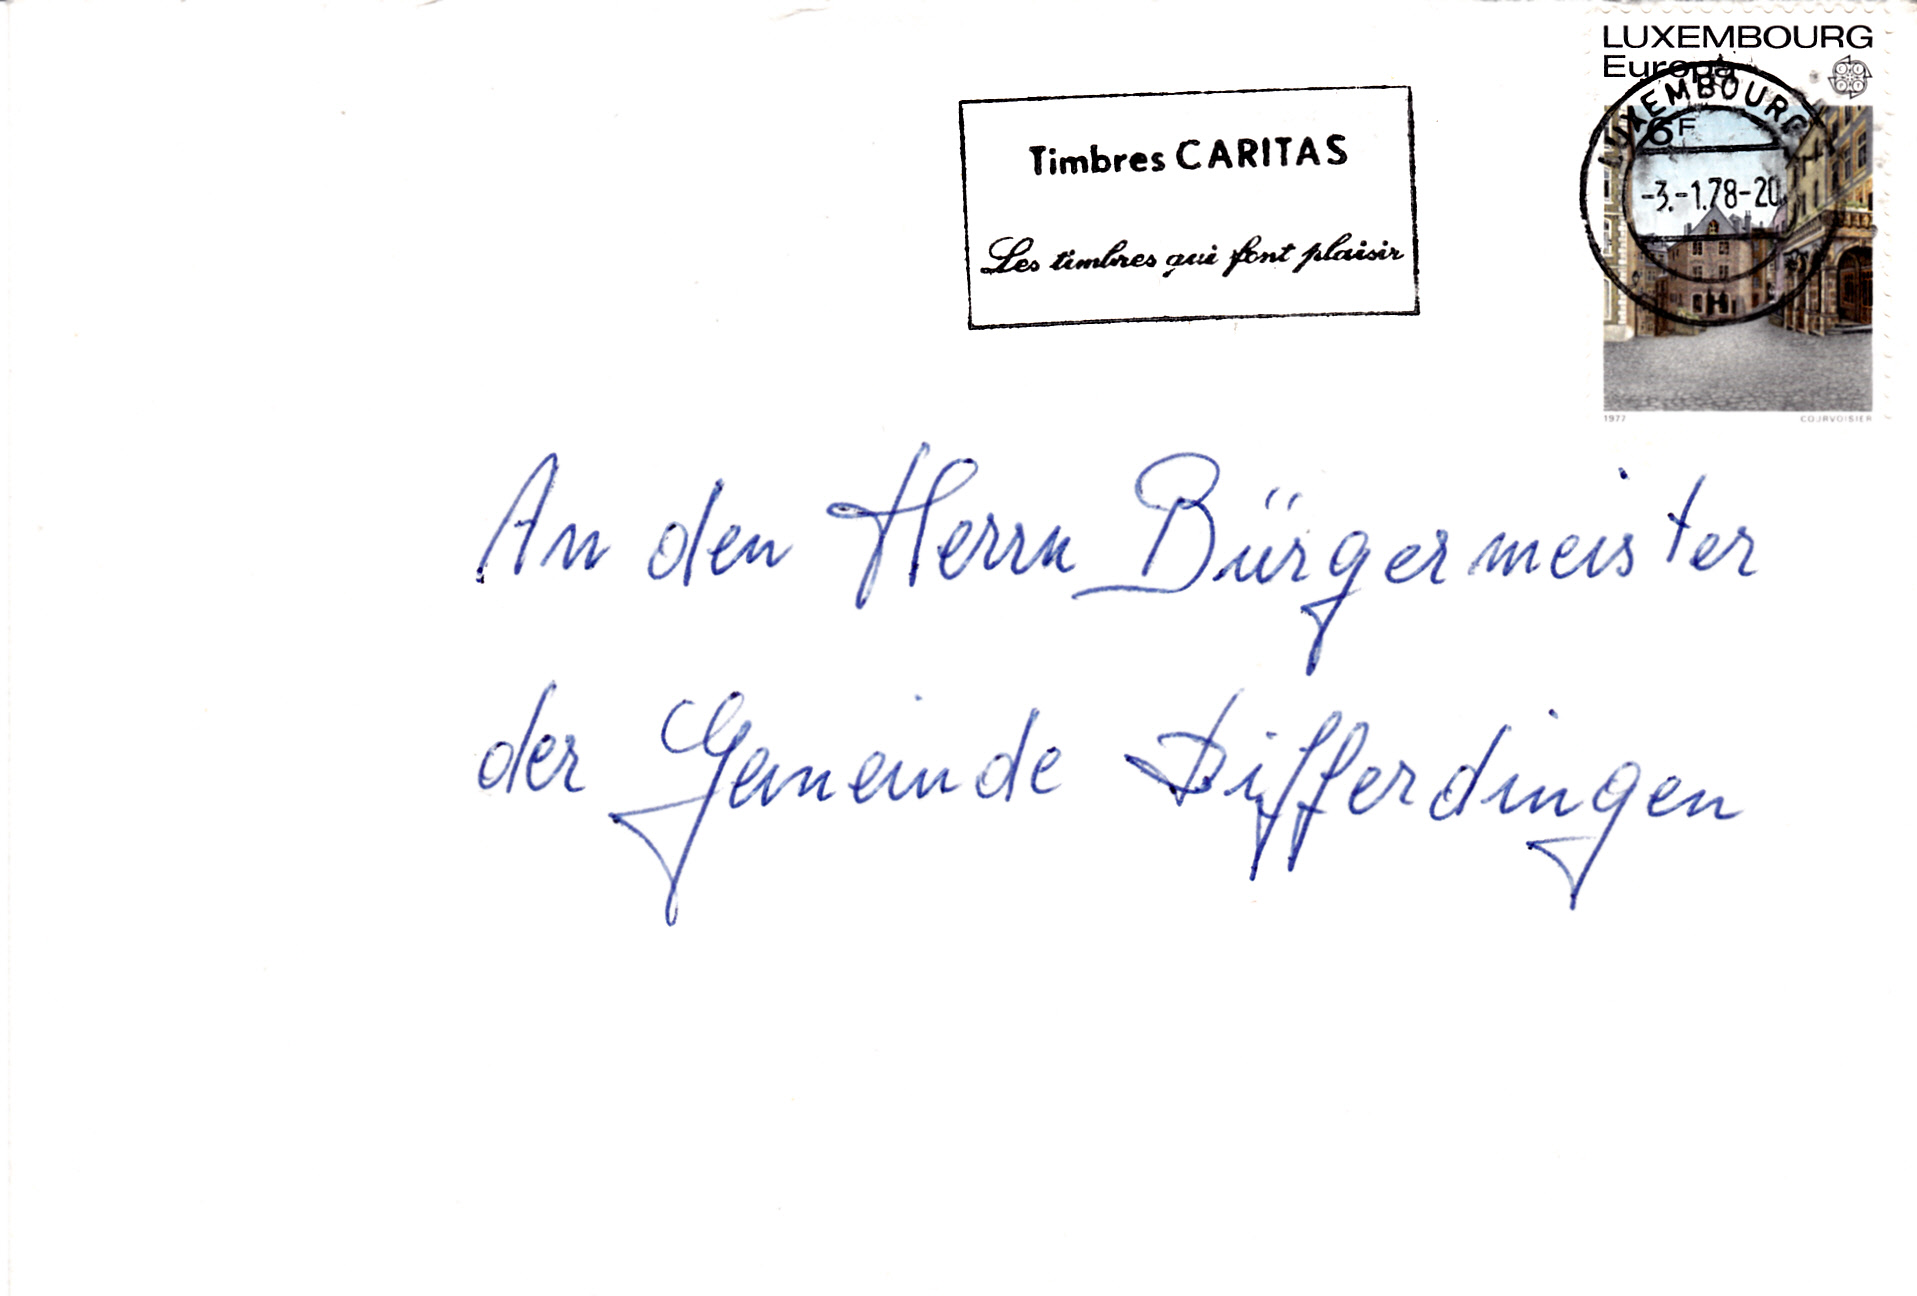 LUXEMBOURG
Europa
6F
LUXEMBOURG
-3.-1.78-20
Timbres CARITAS
Les timbres qui font plaisir
1977 COURVOISIER
An den Herrn Bürgermeister
der Gemeinde Differdingen